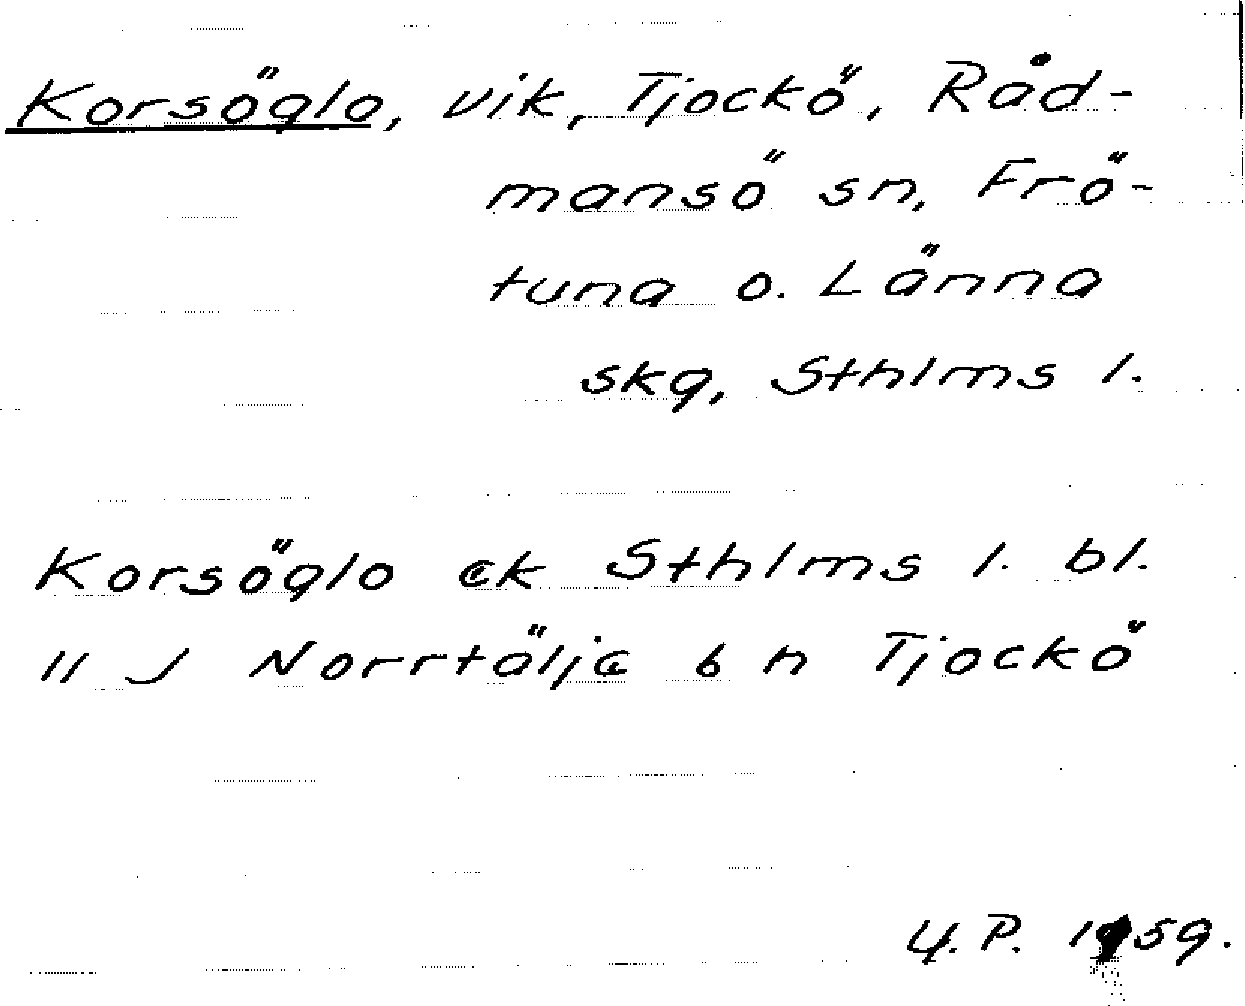 Korsöglo, vik, Tjockö, Råd-
mansö sn, Frö-
tuna o. Länna
skg, Sthlms l.
Korsöglo ek Sthlms l. bl.
11 J Norrtälje 6 h Tjockö
Y.P. 1959.